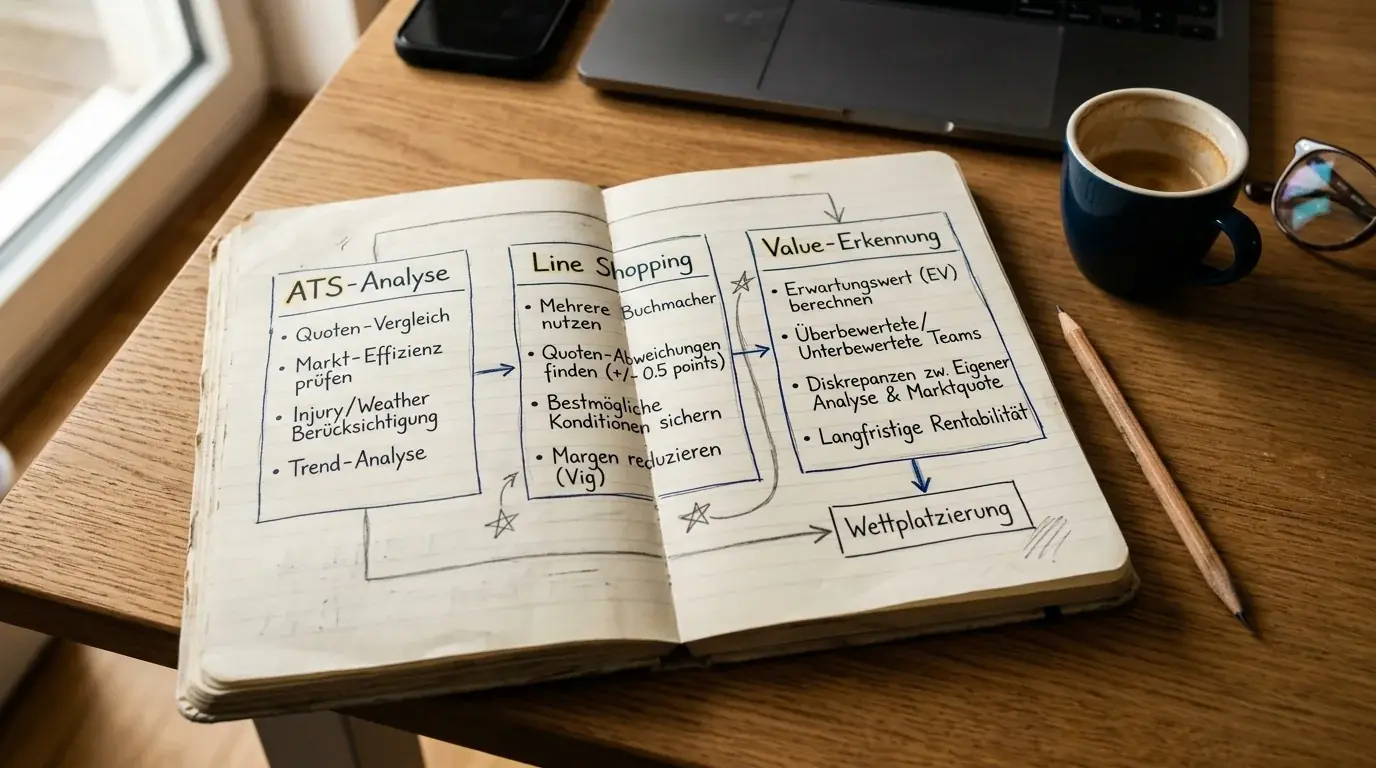 ATS-Analyse
• Quoten-Vergleich
• Markt-Effizienz
prüfen
• Injury/Weather
Berücksichtigung
• Trend-Analyse
Line Shopping
• Mehrere Buchmacher
nutzen
• Quoten-Abweichungen
finden (+/- 0.5 points)
• Bestmögliche
Konditionen sichern
• Margen reduzieren
(Vig)
Value-Erkennung
• Erwartungswert (EV)
berechnen
• Überbewertete/
Unterbewertete Teams
• Diskrepanzen zw. Eigener
Analyse & Marktquote
• Langfristige Rentabilität
Wettplatzierung